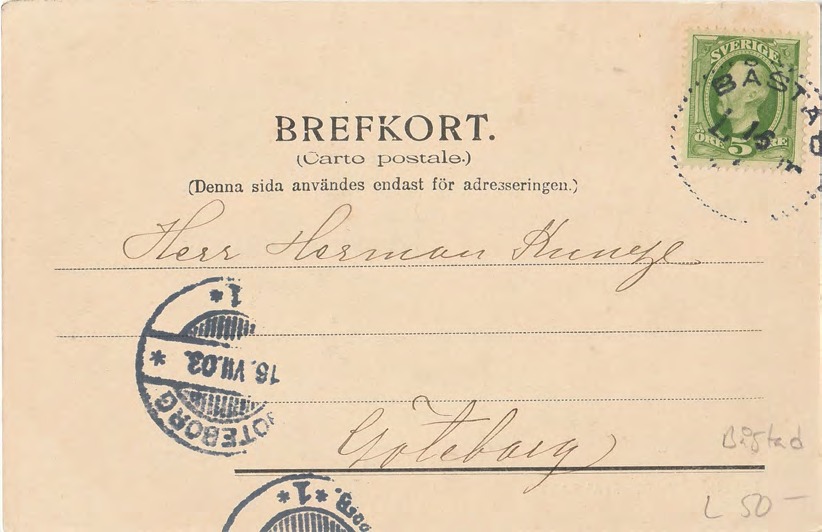 SVERIGE
5
BÅSTAD
L 16
BREFKORT.
(Carte postale.)
(Denna sida användes endast för adresseringen.)
Herr Herman
1*
16.VII.03.
GÖTEBORG
Göteborg
Båstad
*1*
L 50-